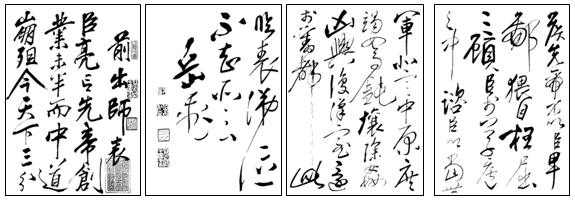 前出師表
臣亮言先帝創
業未半而中道
崩殂今天下三分
臨表涕泣
不知所云
岳飛
軍北定中原庶
竭駑鈍攘除姦
凶興復漢室還
於舊都此
侯先帝不以臣卑
鄙猥自枉屈
三顧臣於草廬
之中諮臣以當世